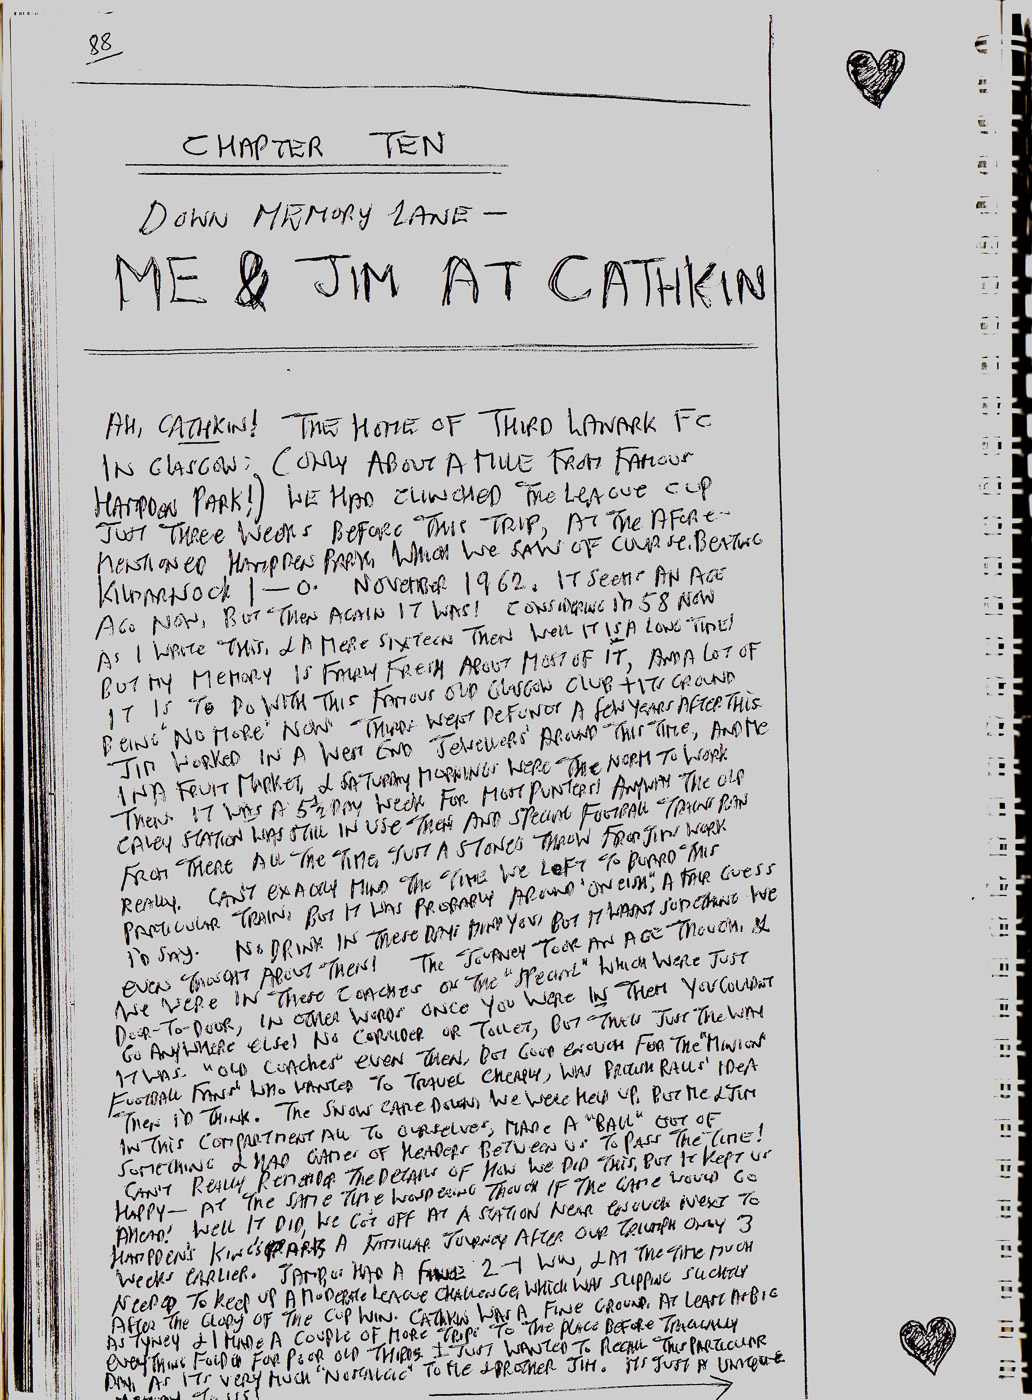 88
CHAPTER TEN
DOWN MEMORY LANE -
ME & JIM AT CATHKIN
AH, CATHKIN! THE HOME OF THIRD LANARK FC
IN GLASGOW; (ONLY ABOUT A MILE FROM FAMOUS
HAMPDEN PARK!) WE HAD CLINCHED THE LEAGUE CUP
JUST THREE WEEKS BEFORE THIS TRIP, AT THE AFORE-
MENTIONED HAMPDEN PARK, WHICH WE SAW OF COURSE. BEATING
KILMARNOCK 1-0. NOVEMBER 1962. IT SEEMS AN AGE
AGO NOW, BUT THEN AGAIN IT WAS! CONSIDERING I'M 58 NOW
AS I WRITE THIS, & A MERE SIXTEEN THEN WELL IT IS A LONG TIME!
BUT MY MEMORY IS FAIRLY FRESH ABOUT MOST OF IT, AND A LOT OF
IT IS TO DO WITH THIS FAMOUS OLD GLASGOW CLUB + ITS GROUND
BEING "NO MORE" NOW. THIRDS WENT DEFUNCT A FEW YEARS AFTER THIS.
JIM WORKED IN A WEST END JEWELLERS' AROUND THIS TIME, AND ME
IN A FRUIT MARKET, & SATURDAY MORNINGS WERE THE NORM TO WORK
THEN. IT WAS A 5½ DAY WEEK FOR MOST PUNTERS! ANYWAY THE OLD
CALEY STATION WAS STILL IN USE THEN AND SPECIAL FOOTBALL TRAINS RAN
FROM THERE ALL THE TIME, JUST A STONES THROW FROM JIM'S WORK
REALLY. CAN'T EXACTLY MIND THE TIME WE LEFT TO BOARD THIS
PARTICULAR TRAIN, BUT IT WAS PROBABLY AROUND "ONEISH", A FAIR GUESS
I'D SAY. NO DRINK IN THESE DAYS MIND YOU, BUT IT WASNT SOMETHING WE
EVEN THOUGHT ABOUT THEN! THE JOURNEY TOOK AN AGE THOUGH, &
WE WERE IN THESE COACHES ON THE "SPECIAL" WHICH WERE JUST
DOOR-TO-DOOR, IN OTHER WORDS ONCE YOU WERE IN THEM YOU COULDNT
GO ANYWHERE ELSE! NO CORRIDER OR TOILET, BUT THATS JUST THE WAY
IT WAS. "OLD COACHES" EVEN THEN, BUT GOOD ENOUGH FOR THE "MINION"
FOOTBALL FANS" WHO WANTED TO TRAVEL CHEAPLY, WAS BRITISH RAILS' IDEA
THEN I'D THINK. THE SNOW CAME DOWN, WE WERE HELD UP, BUT ME & JIM
IN THIS COMPARTMENT ALL TO OURSELVES, MADE A "BALL" OUT OF
SOMETHING & HAD GAMES OF HEADERS BETWEEN US TO PASS THE TIME!
CAN'T REALLY REMEMBER THE DETAILS OF HOW WE DID THIS, BUT IT KEPT US
HAPPY- AT THE SAME TIME WONDERING THOUGH IF THE GAME WOULD GO
AHEAD! WELL IT DID, WE GOT OFF AT A STATION NEAR ENOUGH NEXT TO
HAMPDEN'S KING'S PARK, A FAMILIAR JOURNEY AFTER OUR TRIUMPH ONLY 3
WEEKS EARLIER. JAMBOS HAD A FINE 2-1 WIN, & AT THE TIME MUCH
NEEDED TO KEEP UP A MODERATE LEAGUE CHALLENGE, WHICH WAS SLIPPING SLIGHTLY
AFTER THE GLORY OF THE CUP WIN. CATHKIN WAS A FINE GROUND, AT LEAST AS BIG
AS TYNEY & I MADE A COUPLE OF MORE TRIPS TO THE PLACE BEFORE TRAGICALLY
EVERYTHING FOLDED FOR POOR OLD THIRDS. I JUST WANTED TO RECALL THIS PARTICULAR
DAY, AS IT'S VERY MUCH "NOSTALGIC" TO ME & BROTHER JIM. IT'S JUST A UNIQUE
TO US!